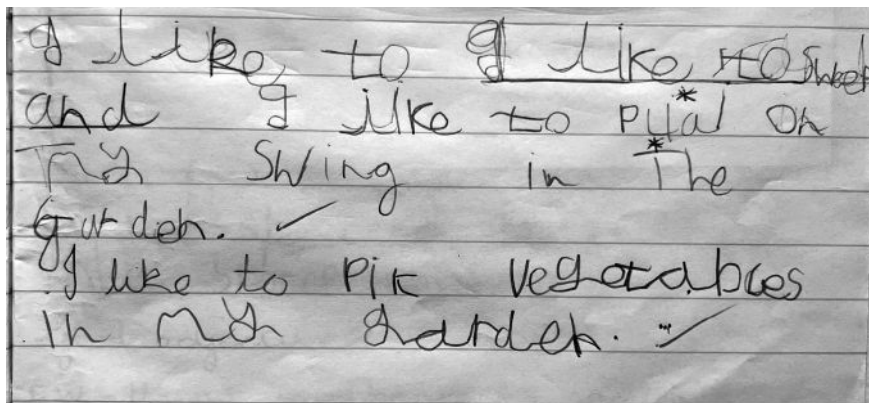 I like to I like to
and I like to Plyal on
my Swing in The
Gurden.
I like to Pik vegetables
in my garden.